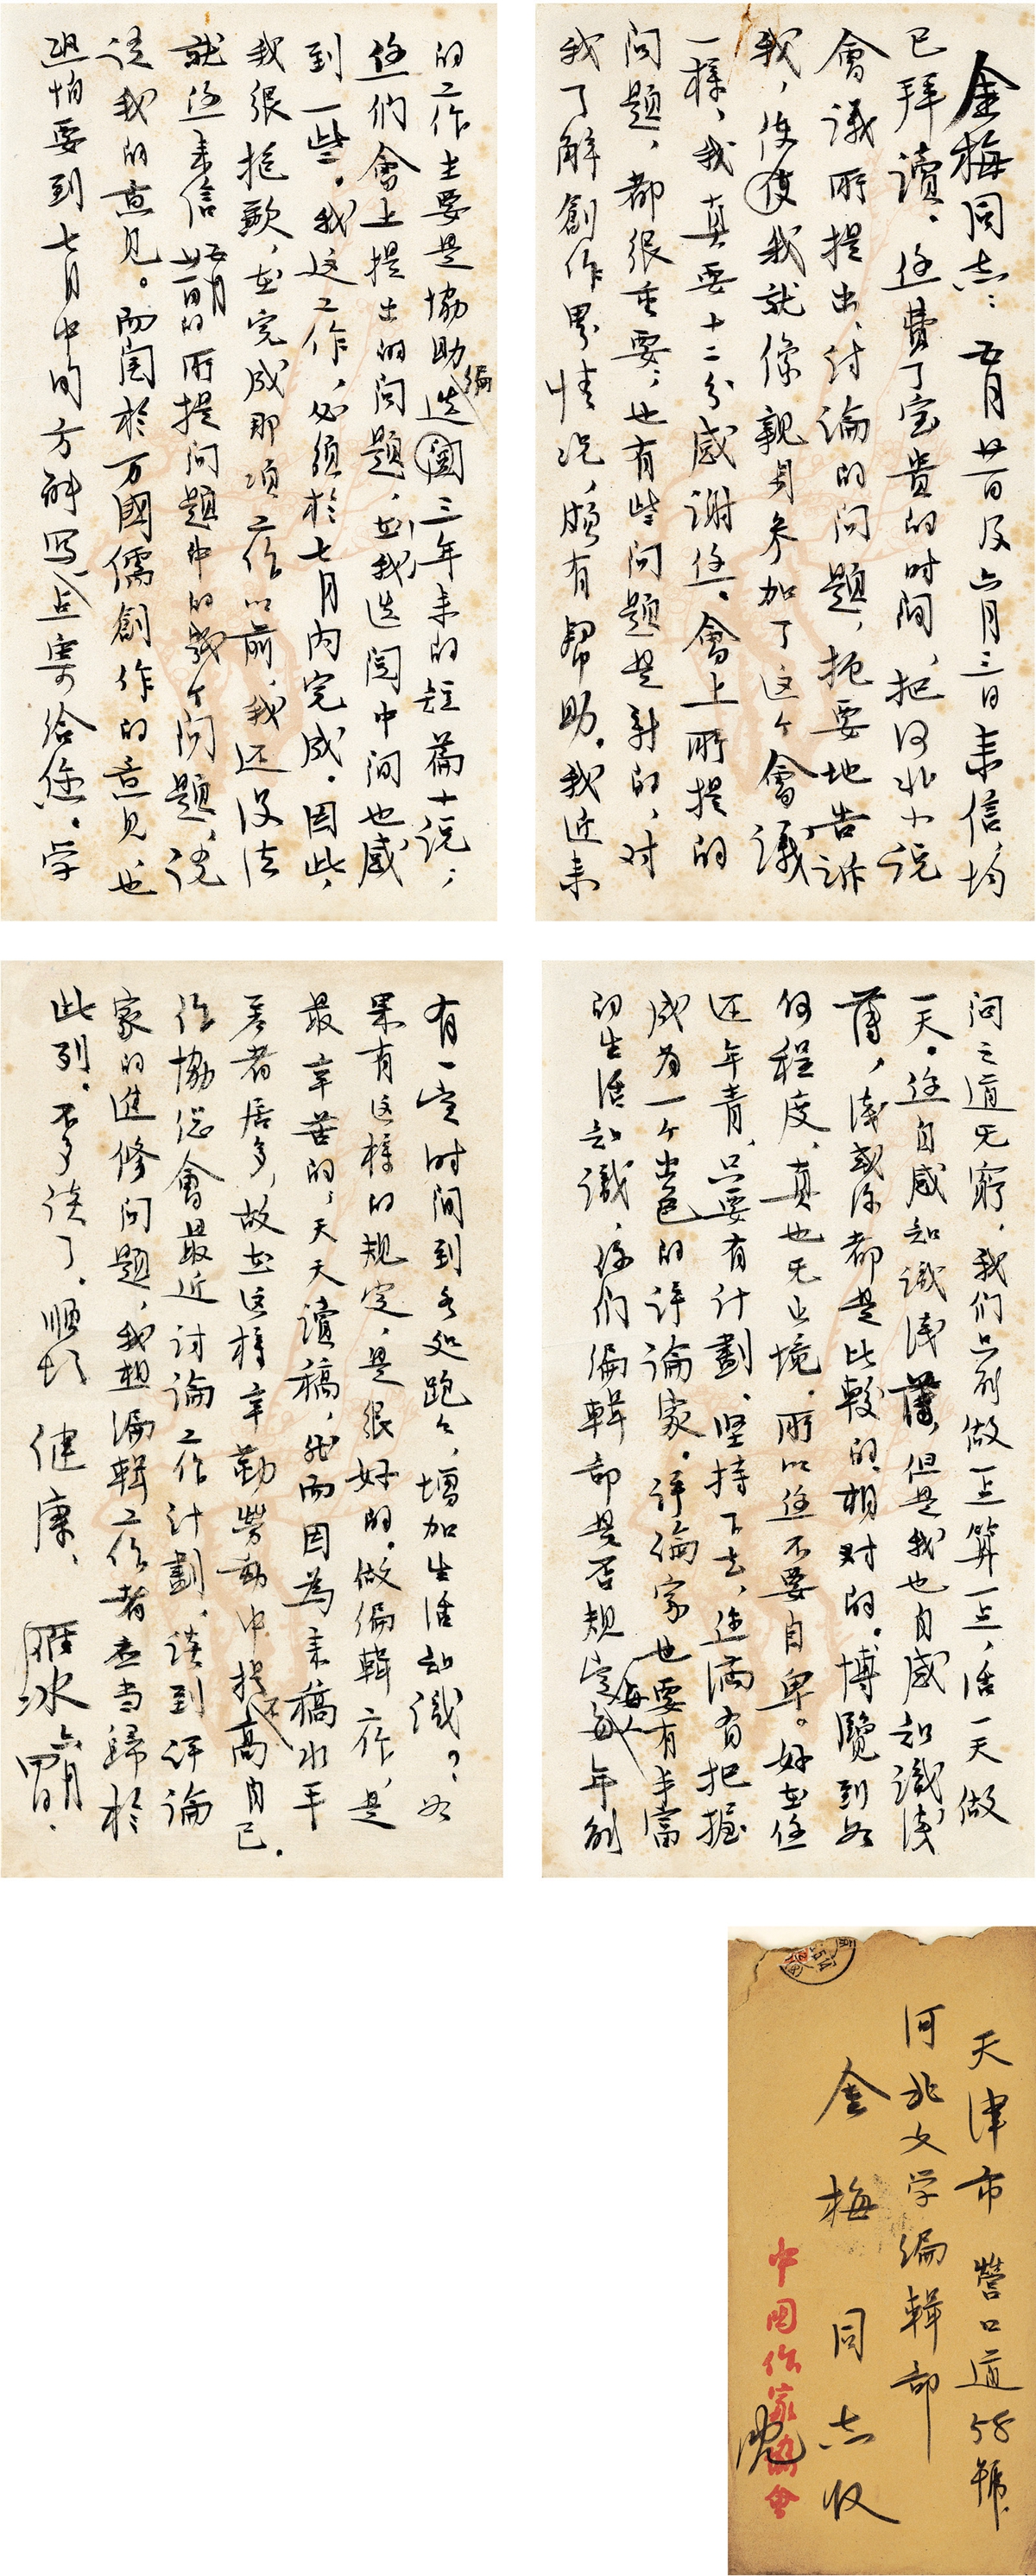 金梅同志：五月廿一日及六月三日来信，均
已拜讀。您費了宝贵的时间，把河北小说
會議所提出、讨論的问題，扼要地告訴
我，使我就像親身参加了这个會議
一樣，我真要十二分感謝您。會上所提的
问題，都很重要；也有些问題是新的，对
我了解創作界情况，頗有帮助。我近来
的工作主要是協助选编三年来的短篇小说；
您们會上提出的问題，在我选閲中间也感
到一些。我这工作，必须於七月内完成。因此，
我很抱歉，在完成那項工作以前，我还没法
就您来信（五月廿一日的）所提问題中的幾个问題，说
说我的意见。而関於万國儒創作的意见，也
恐怕要到七月中旬方能写点寄给您。学
问之道无窮，我们只能做一点算一点，活一天做
一天。您自感知識浅薄，但是我也自感知識浅
薄，浅或深都是比較的相对的。博覽到如
何程度，真也无止境。所以您不要自卑。好在您
还年青，只要有计劃，坚持下去，您满有把握
成为一个出色的评論家。评論家也要有丰富
的生活知識，你们编輯部是否规定每人每年能
有一定时间到各处跑跑，增加生活知識？如
果有这樣的规定，是很好的。做编輯工作，是
最辛苦的，天天讀稿，然而因為来稿水平
差者居多，故在这樣辛勤勞動中提不高自己。
作協总會最近讨論工作计劃，談到评論
家的進修问題，我想编輯工作者应当歸於
此列。不多談了。順頌
健康、
雁冰 六月四日。
天津市 營口道58號
河北文学编輯部
金梅同志收
中国作家協會
沈